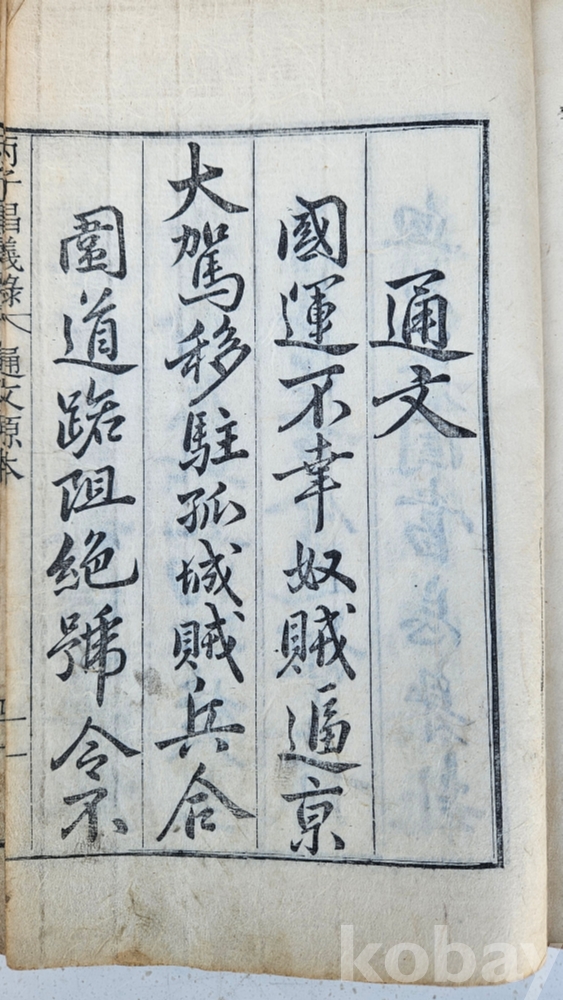 通文
國運不幸奴賊逼京
大駕移駐孤城賊兵合
圍道路阻絕號令不
丙子倡義錄 通文原本
kobay